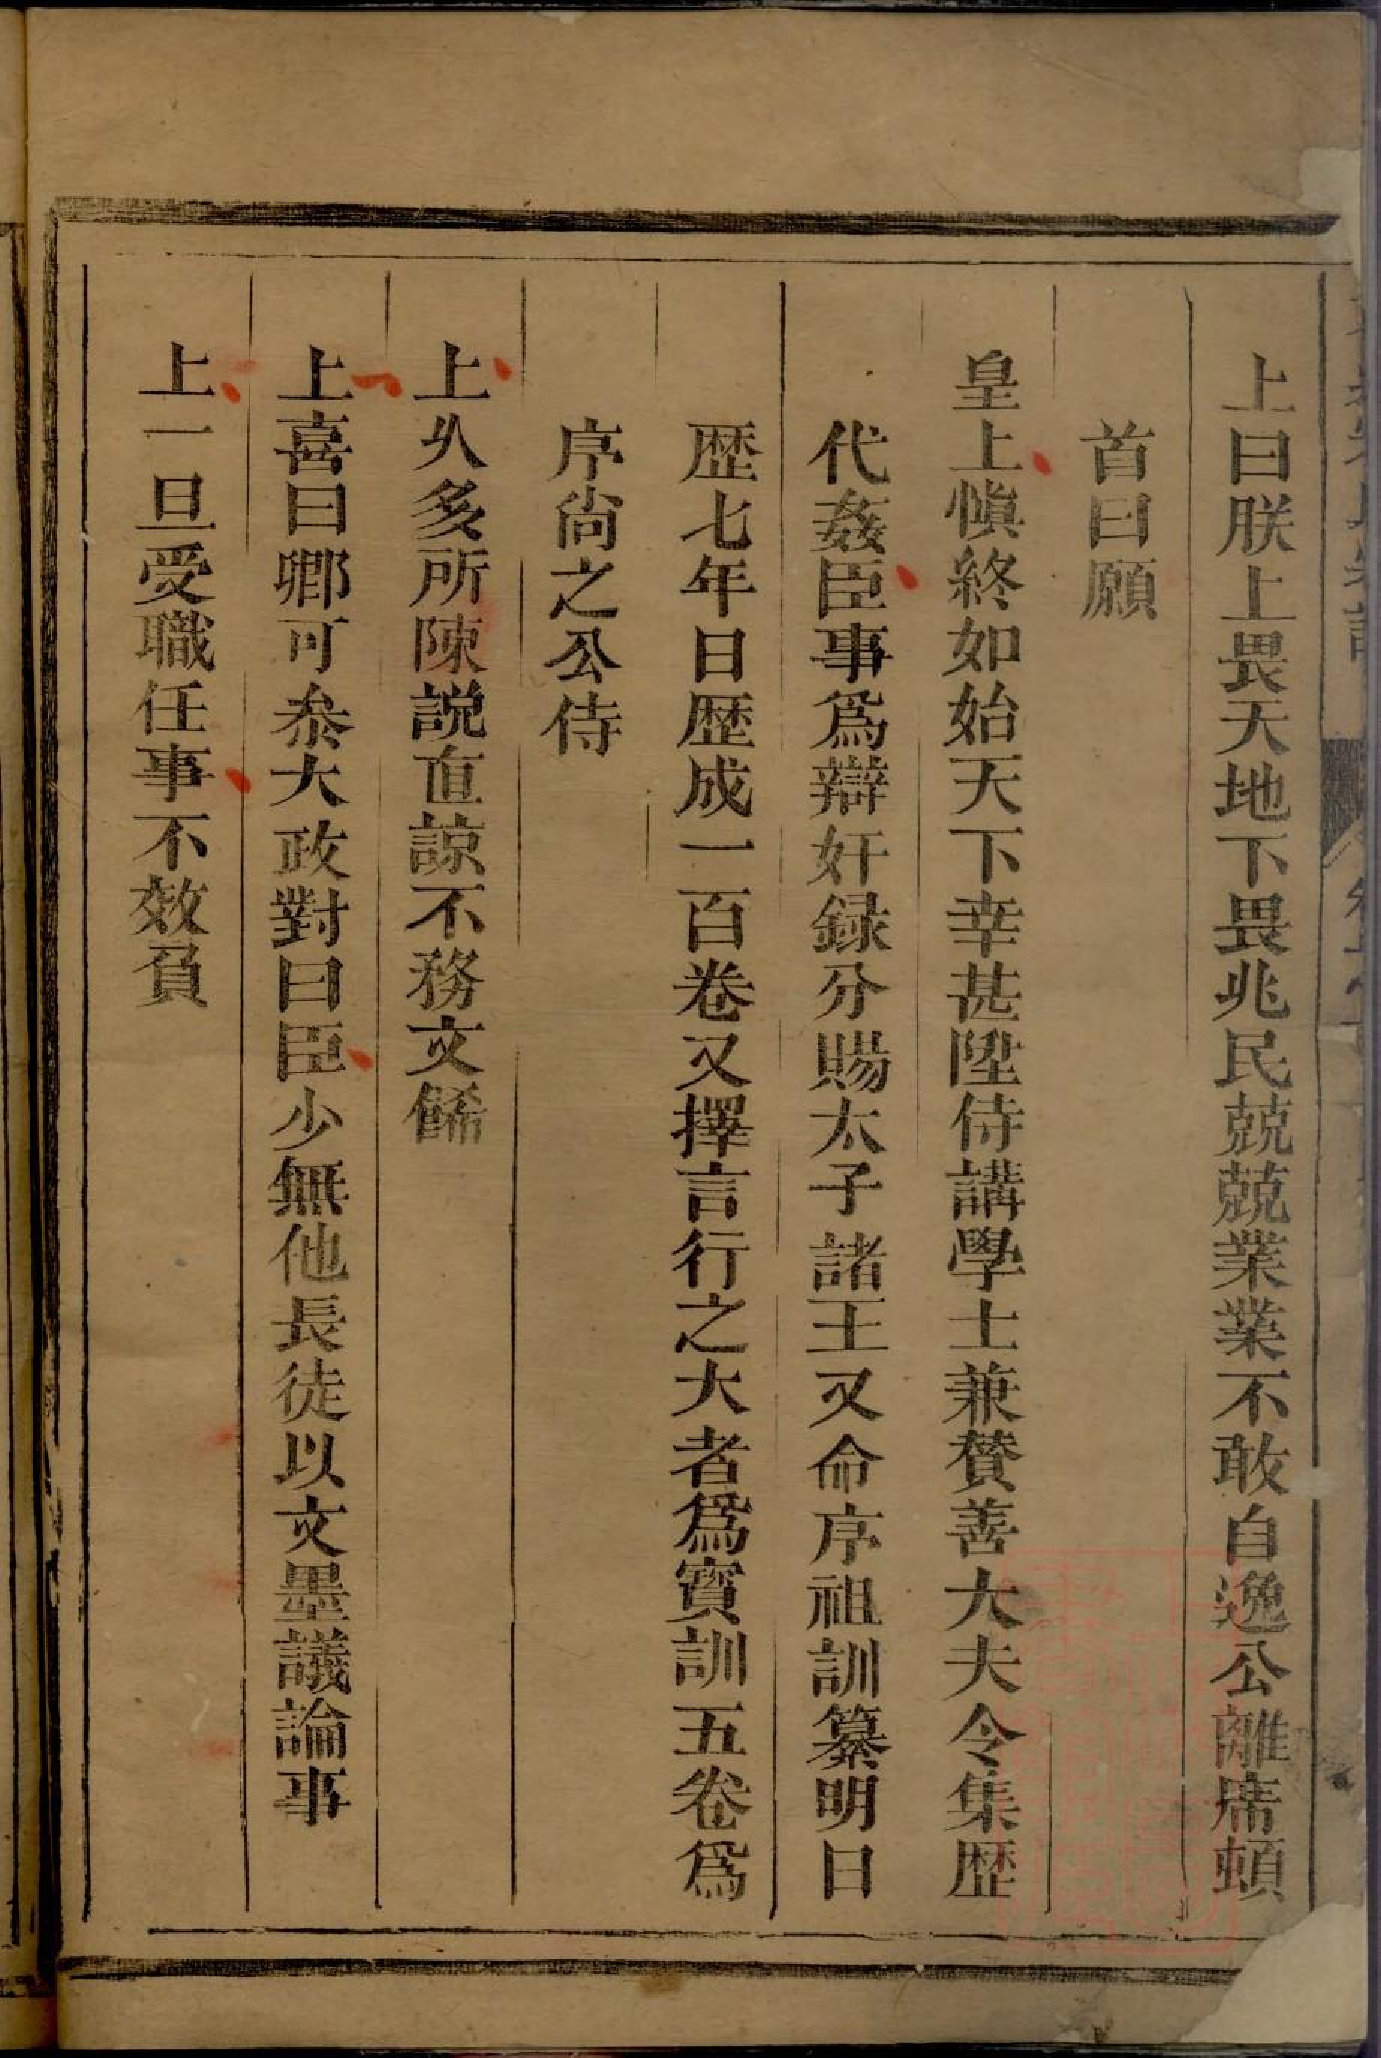 上曰朕上畏天地下畏兆民兢兢業業不敢自逸公離席頓
首曰願
皇上愼終如始天下幸甚陞侍講學士兼賛善大夫令集歴
代姦臣事爲辯奸録分賜太子諸王又命序祖訓纂明日
歴七年日歴成一百卷又擇言行之大者爲寳訓五卷爲
序尚之公侍
上乆多所陳説直諒不務文餙
上喜曰卿可叅大政對曰臣少無他長徒以文墨議論事
上一旦受職任事不效負